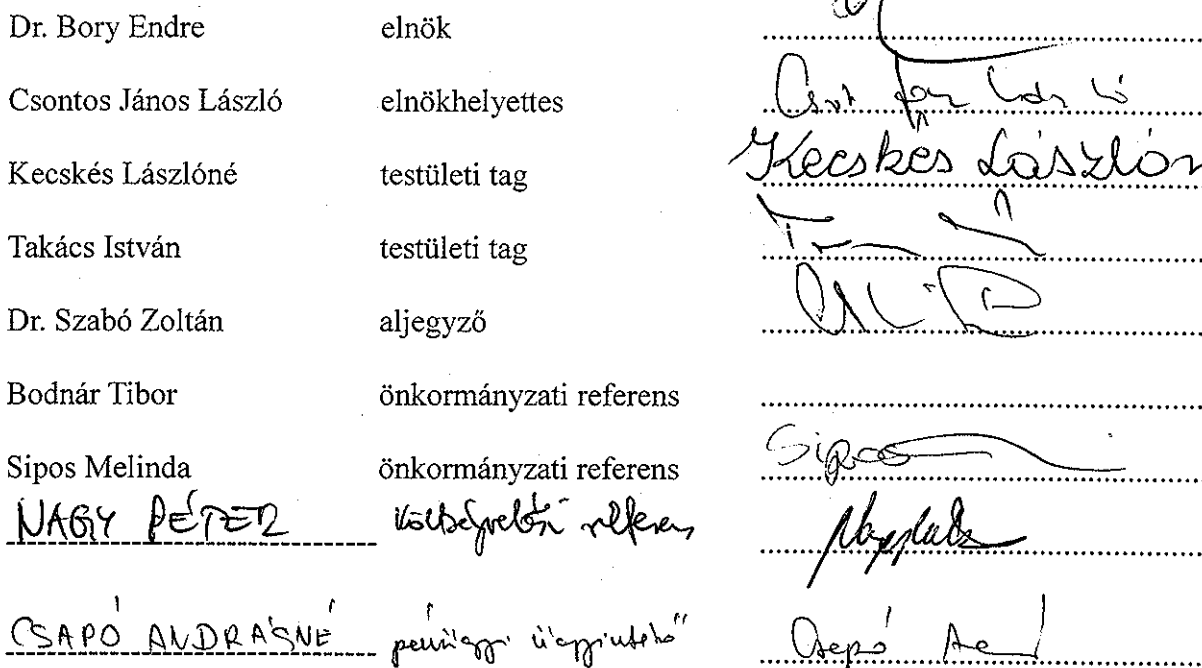 Dr. Bory Endre elnök
Csontos János László elnökhelyettes
Kecskés Lászlóné testületi tag Kecskés Lászlón
Takács István testületi tag
Dr. Szabó Zoltán aljegyző
Bodnár Tibor önkormányzati referens
Sipos Melinda önkormányzati referens Sipos
NAGY PÉTER költségvetési referens
CSAPÓ ANDRÁSNÉ pénzügyi ügyintéző Csapó